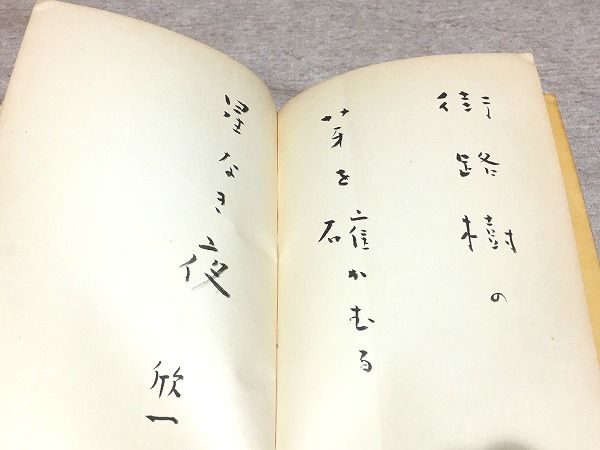 街路樹の
芽を確かむる
星なき夜
欣一